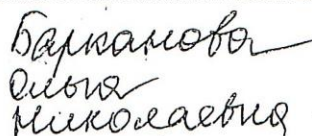 Барканова
Ольга
Николаевна